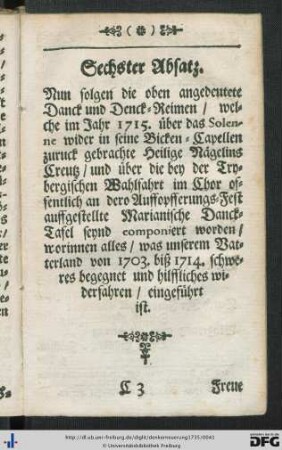 ( * )
Sechster Absatz.
Nun folgen die oben angedeutete
Danck und Denck-Reimen / wel-
che im Jahr 1715. über das Solen-
ne wider in seine Bicken-Capellen
zuruck gebrachte Heilige Nägelins
Creutz / und über die bey der Try-
bergischen Wahlfahrt im Chor of-
fentlich an dero Auffopfferungs-Fest
auffgestellte Marianische Danck-
Tafel seynd componiert worden /
worinnen alles / was unserem Vat-
terland von 1703. biß 1714. schwe-
res begegnet und hilffliches wi-
derfahren / eingeführt
ist.
C 3 Freue
http://dl.ub.uni-freiburg.de/diglit/denkerneuerung1735/0041
© Universitätsbibliothek Freiburg
DFG